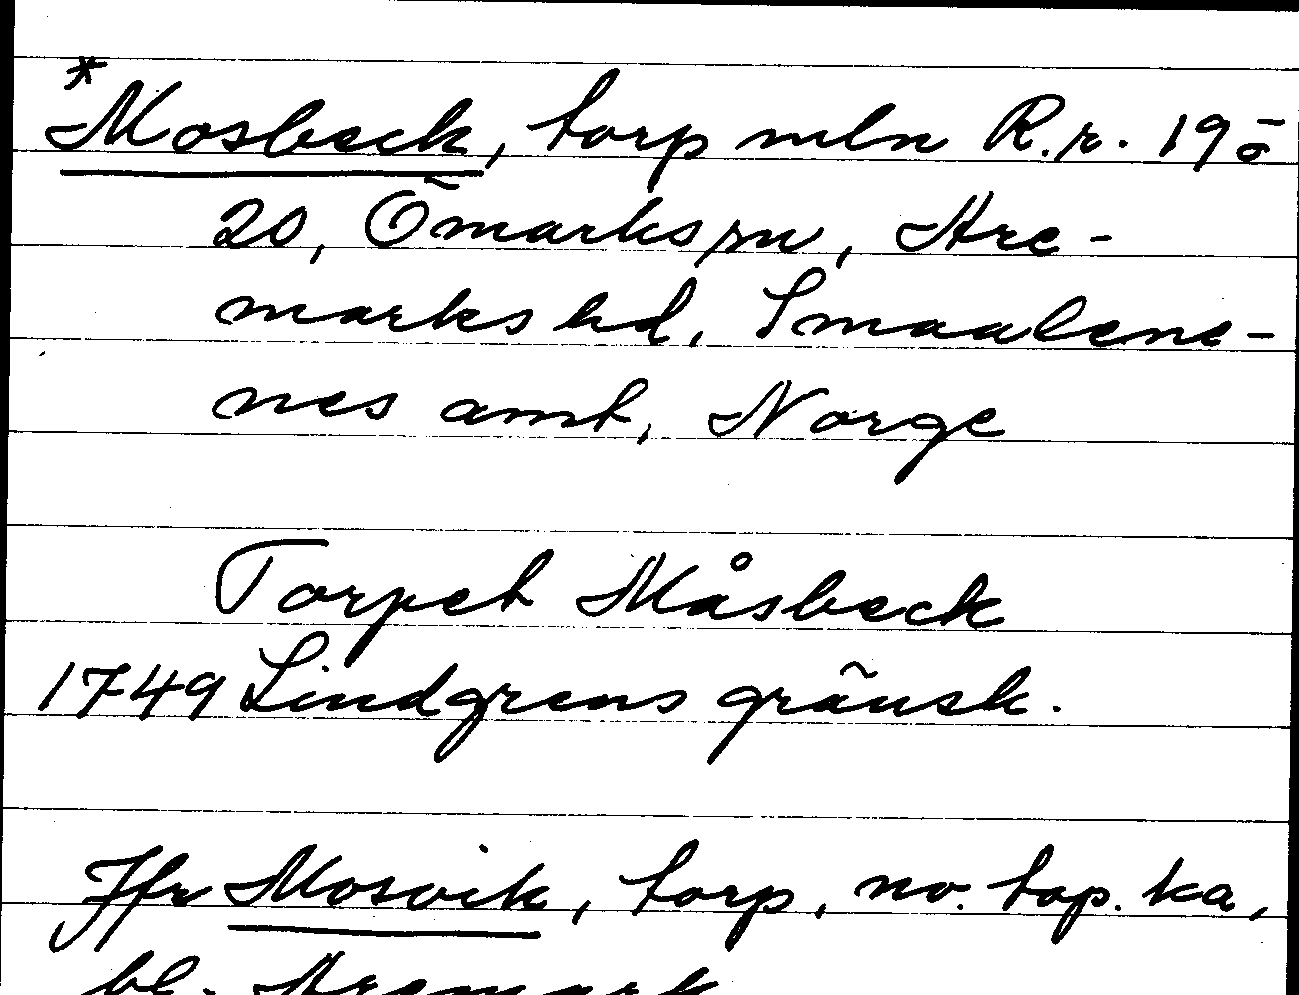 *Mosbeck, torp mln R.r. 19 ö
20, Ömarks sn, Are-
marks hd, Smaalene-
nes amt, Norge
Torpet Måsbeck
1749 Lindgrens gränsk.
Jfr Mosvik, torp, no. top. ka,
bl. Aremark